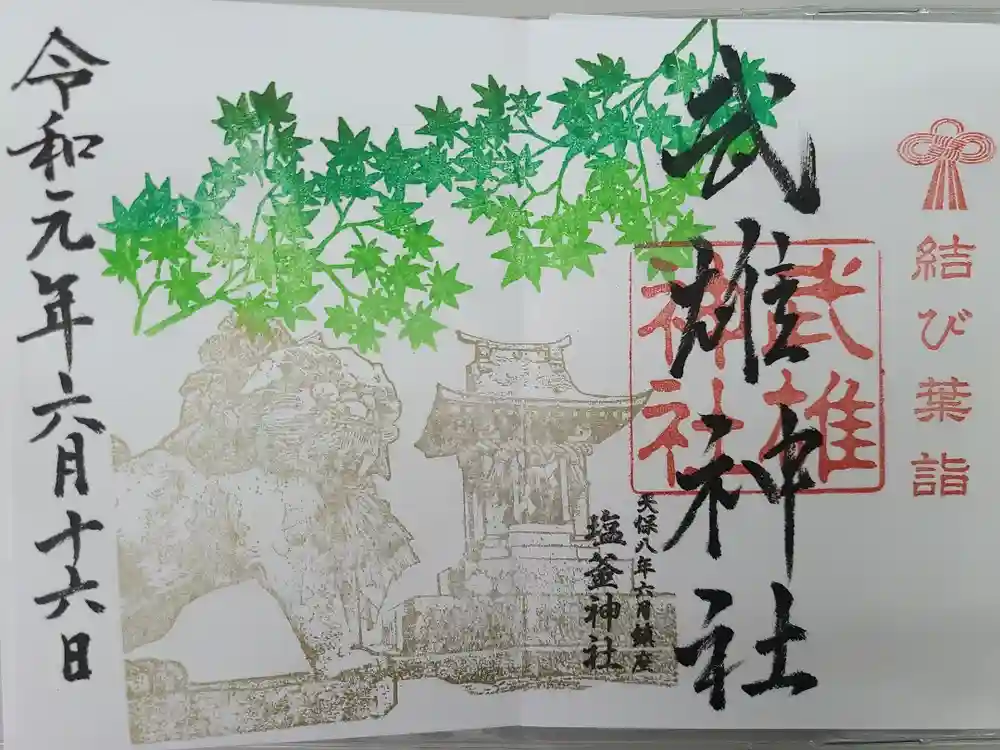 結び葉詣
武雄神社
武雄神社
天保八年六月鎮座
塩釜神社
令和元年六月十六日